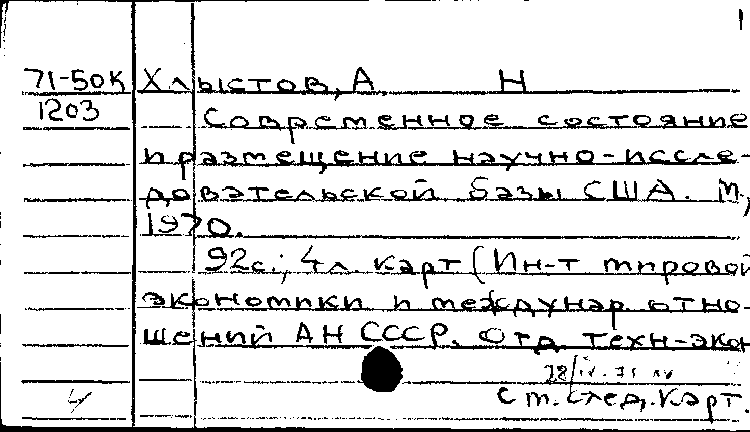 71-50К Хлыстов, А. Н
1203
Современное состояние
и размещение научно-иссле-
довательской базы США. М,
1970.
92с.; 4л. карт (Ин-т мировой
экономики и междунар. отно-
шений АН СССР. Отд. техн-экон
см. след. карт.